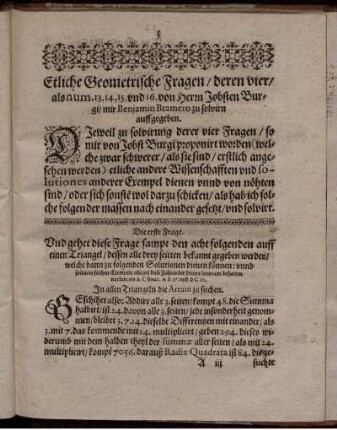 5
Etliche Geometrische Fragen/ deren vier/
als num. 13. 14. 15. vnd 16. von Herrn Jobsten Bur-
gi/ mir Benjamin Bramero zu solvirn
auffgegeben.
DJeweil zu solvirung derer vier Fragen/ so
mir von Jobst Burgi proponirt worden/ wel-
che zwar schwerer/ als sie sind/ erstlich ange-
sehen werden) etliche andere Wissenschafften vnd so-
lutiones anderer Exempel dienen vnnd von nöhten
sind/ oder sich sonstē wol darzu schicken/ als hab ich sol-
che folgender massen nach einander gesetzt/ vnd solvirt.
Die erste Frage.
Vnd gehet diese Frage sampt den acht folgenden auff
einen Triangel/ dessen alle drey seitten bekannt gegeben werden/
welche dann zu folgenden Solutionen dienen können: vnnd
In allen Triangeln die Aream zu suchen.
GEschihet also: Addire alle 3. seiten/ kompt 48. die Summa
halbirt/ ist 24. davon alle 3. seiten/ jede insonderheit genom-
men/ bleibet 3. 7. 14. dieselbe Differentzen mit einander/ als
3. mit 7. das kommende mit 14. multiplicirt/ geben 294. dieses wi-
derumb mit dem halben theyl der summæ aller seiten/ als mit 24.
multiplicirt/ kompt 7056. darauß Radix Quadrata ist 84. diesge-
A iij suchte